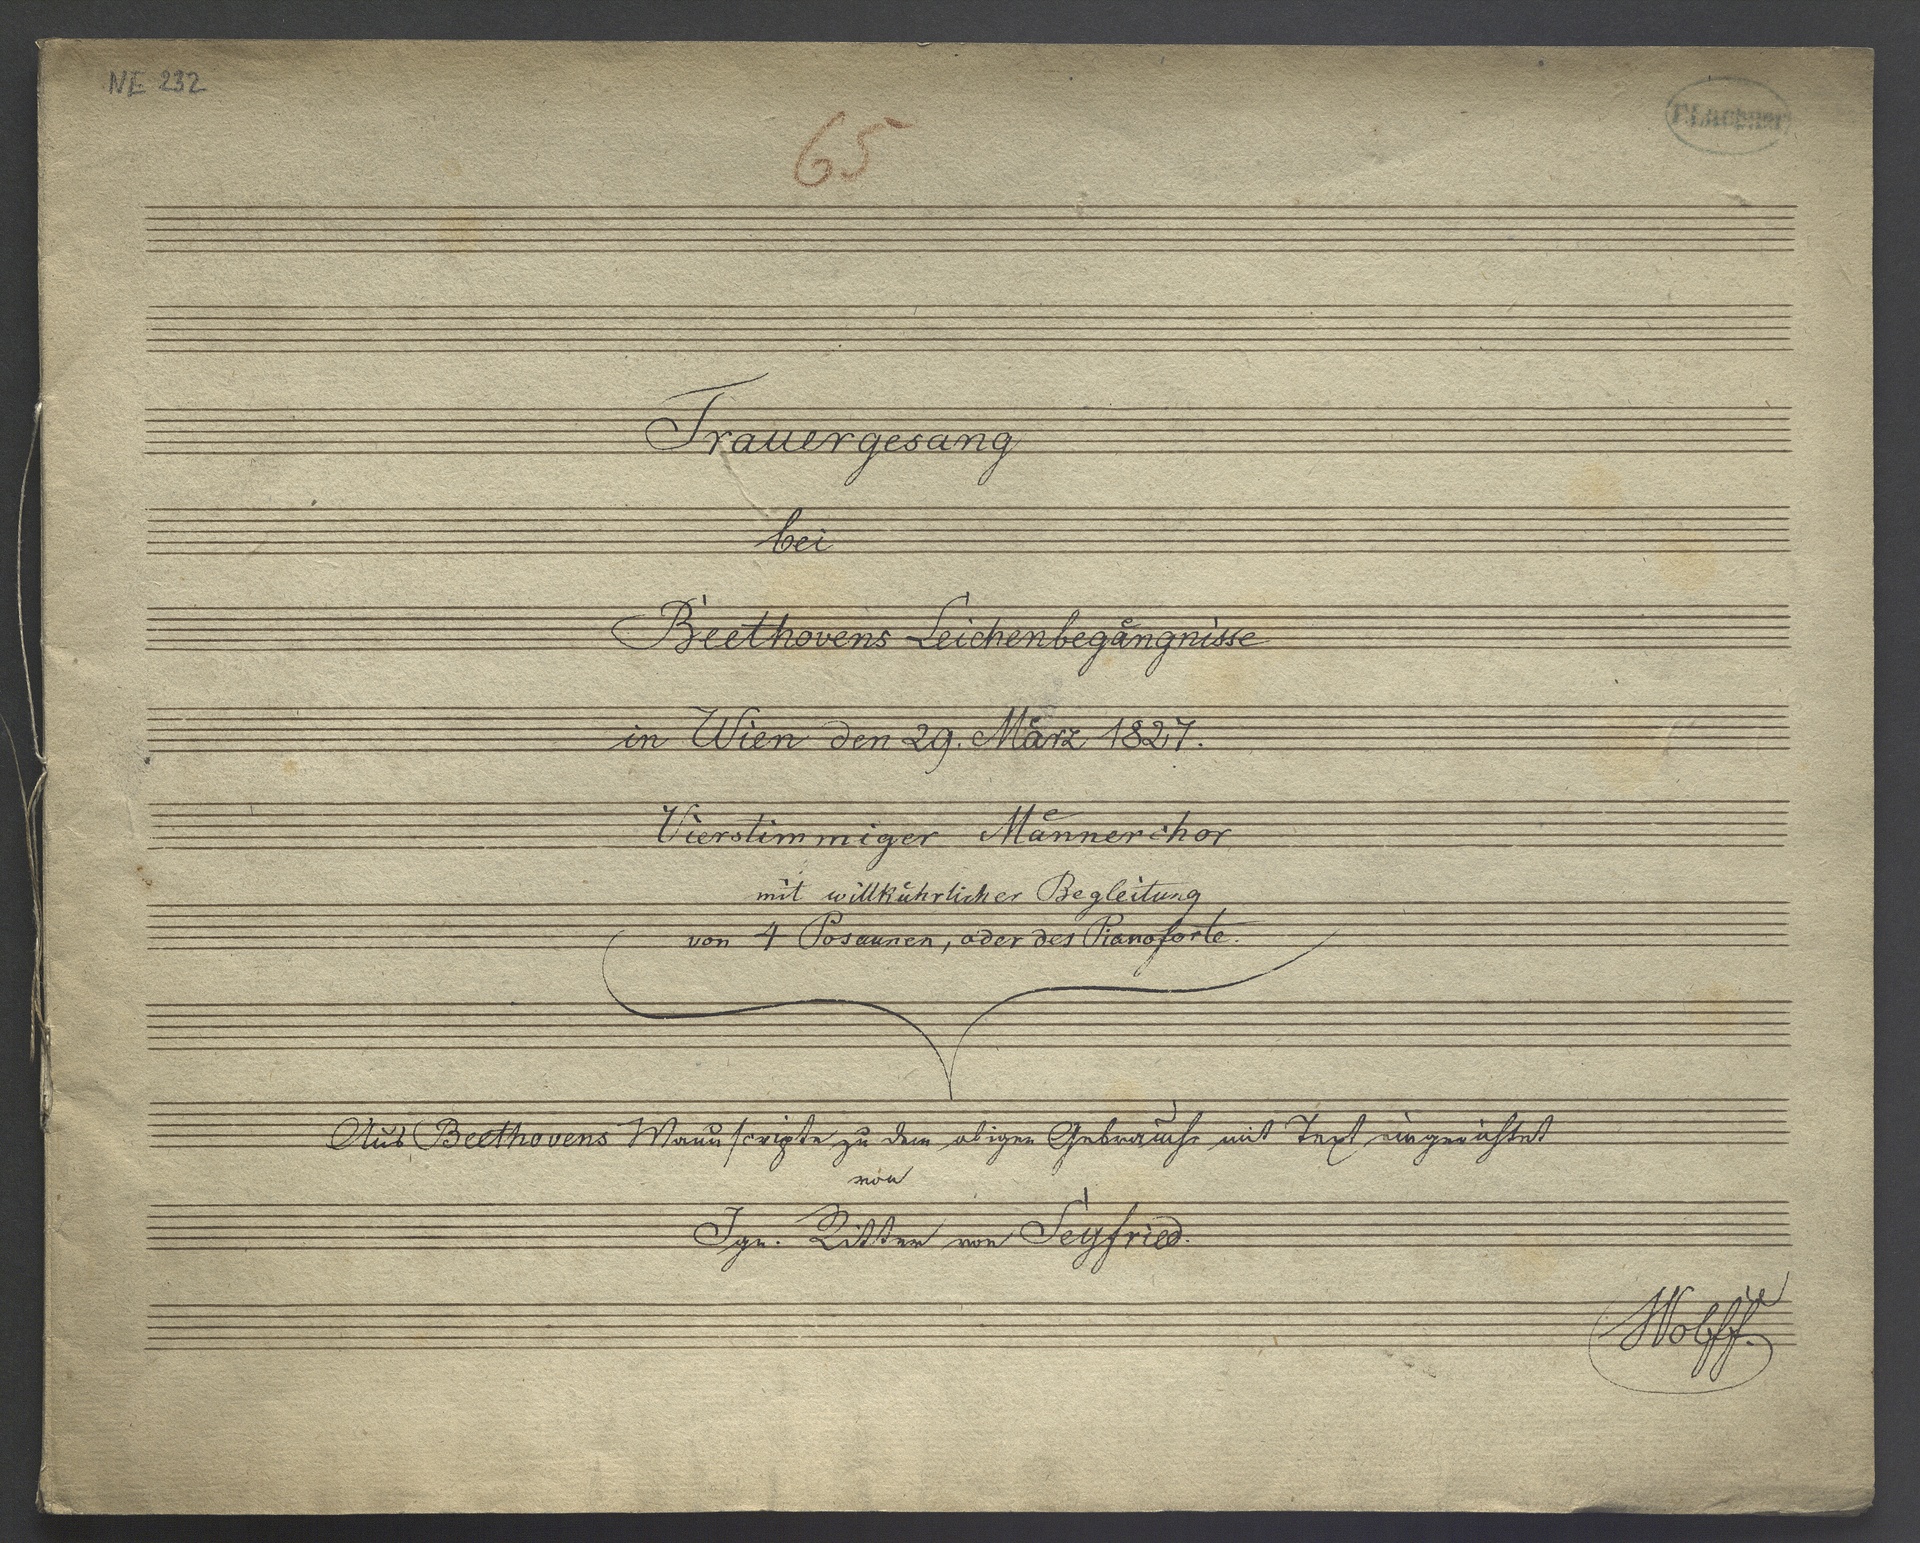 NE 232
65
F. Lachner
Trauergesang
bei
Beethovens Leichenbegängnisse
in Wien den 29. März 1827.
Vierstimmiger Männerchor
mit willkührlicher Begleitung
von 4 Posaunen, oder des Pianoforte.
Aus Beethovens Manuscripte zu dem obigen Gebrauche mit Text eingerichtet
von
Ign. Ritter von Seyfried.
Wolff.